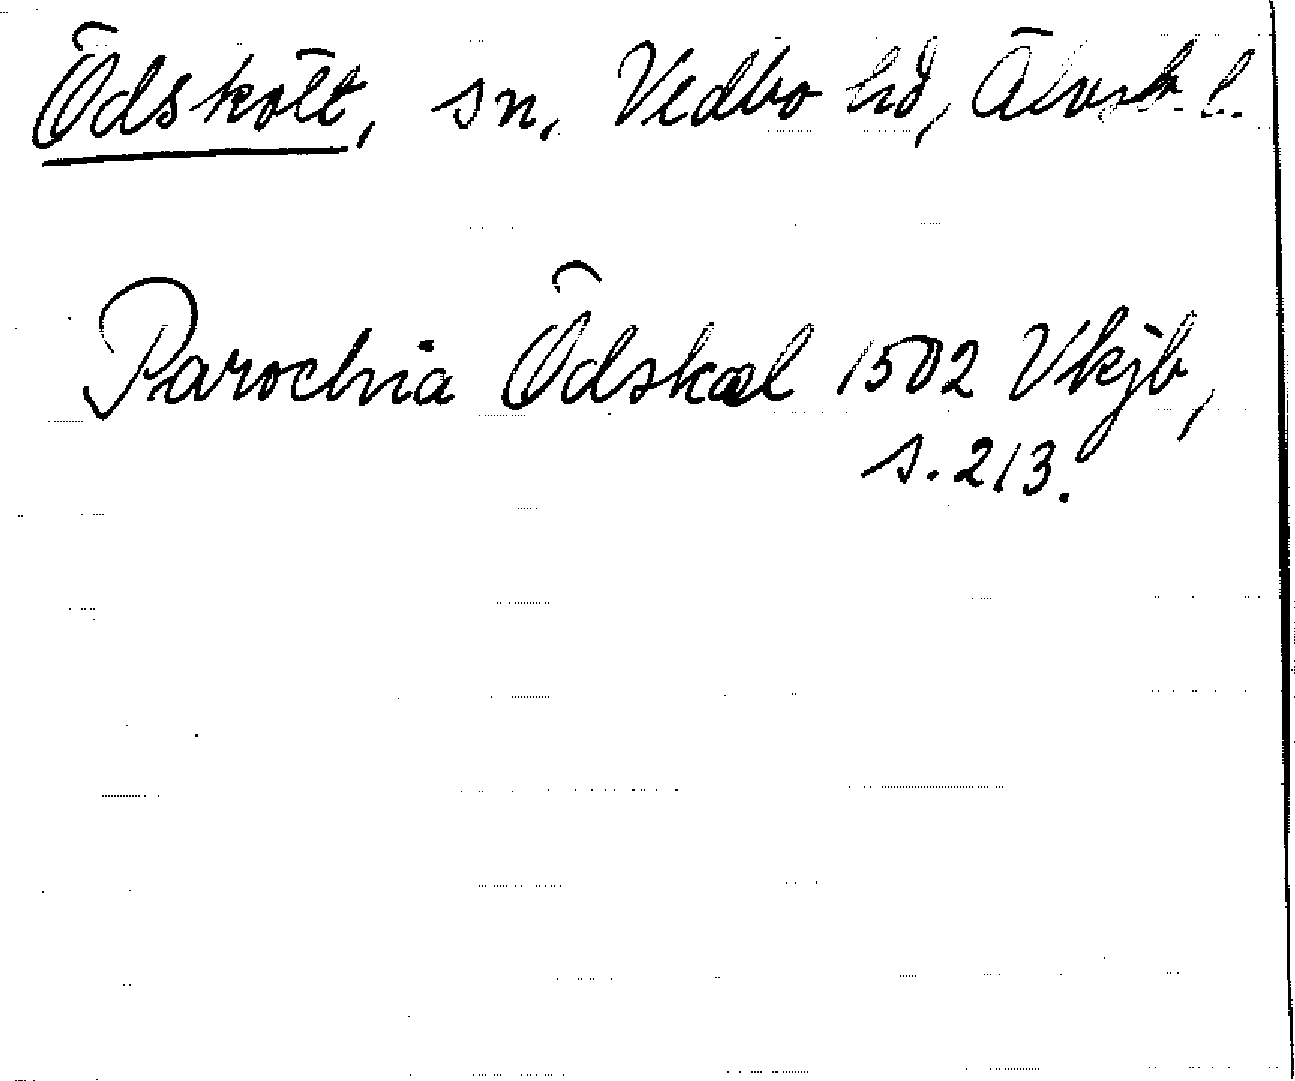 Ödskölt, sn, Vedbo hd, Älvsb. l.
Parochia Ödskœl 1502 Vkjb,
s. 213.